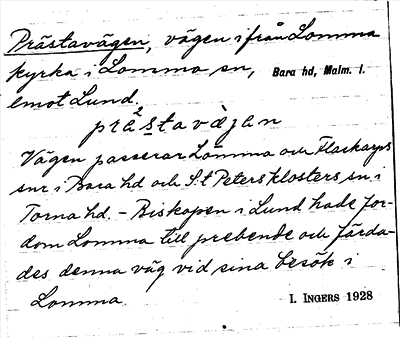 Prästavägen, vägen ifrån Lomma
kyrka i Lomma sn, Bara hd, Malm. l.
emot Lund.
prä²stavὰgan
Vägen passerar Lomma och Flackarps
snr i Bara hd och S:t Peters klosters sn i
Torna hd. – Biskopen i Lund hade for-
dom Lomma till prebende och färda-
des denna väg vid sina besök i
Lomma.
I. INGERS 1928